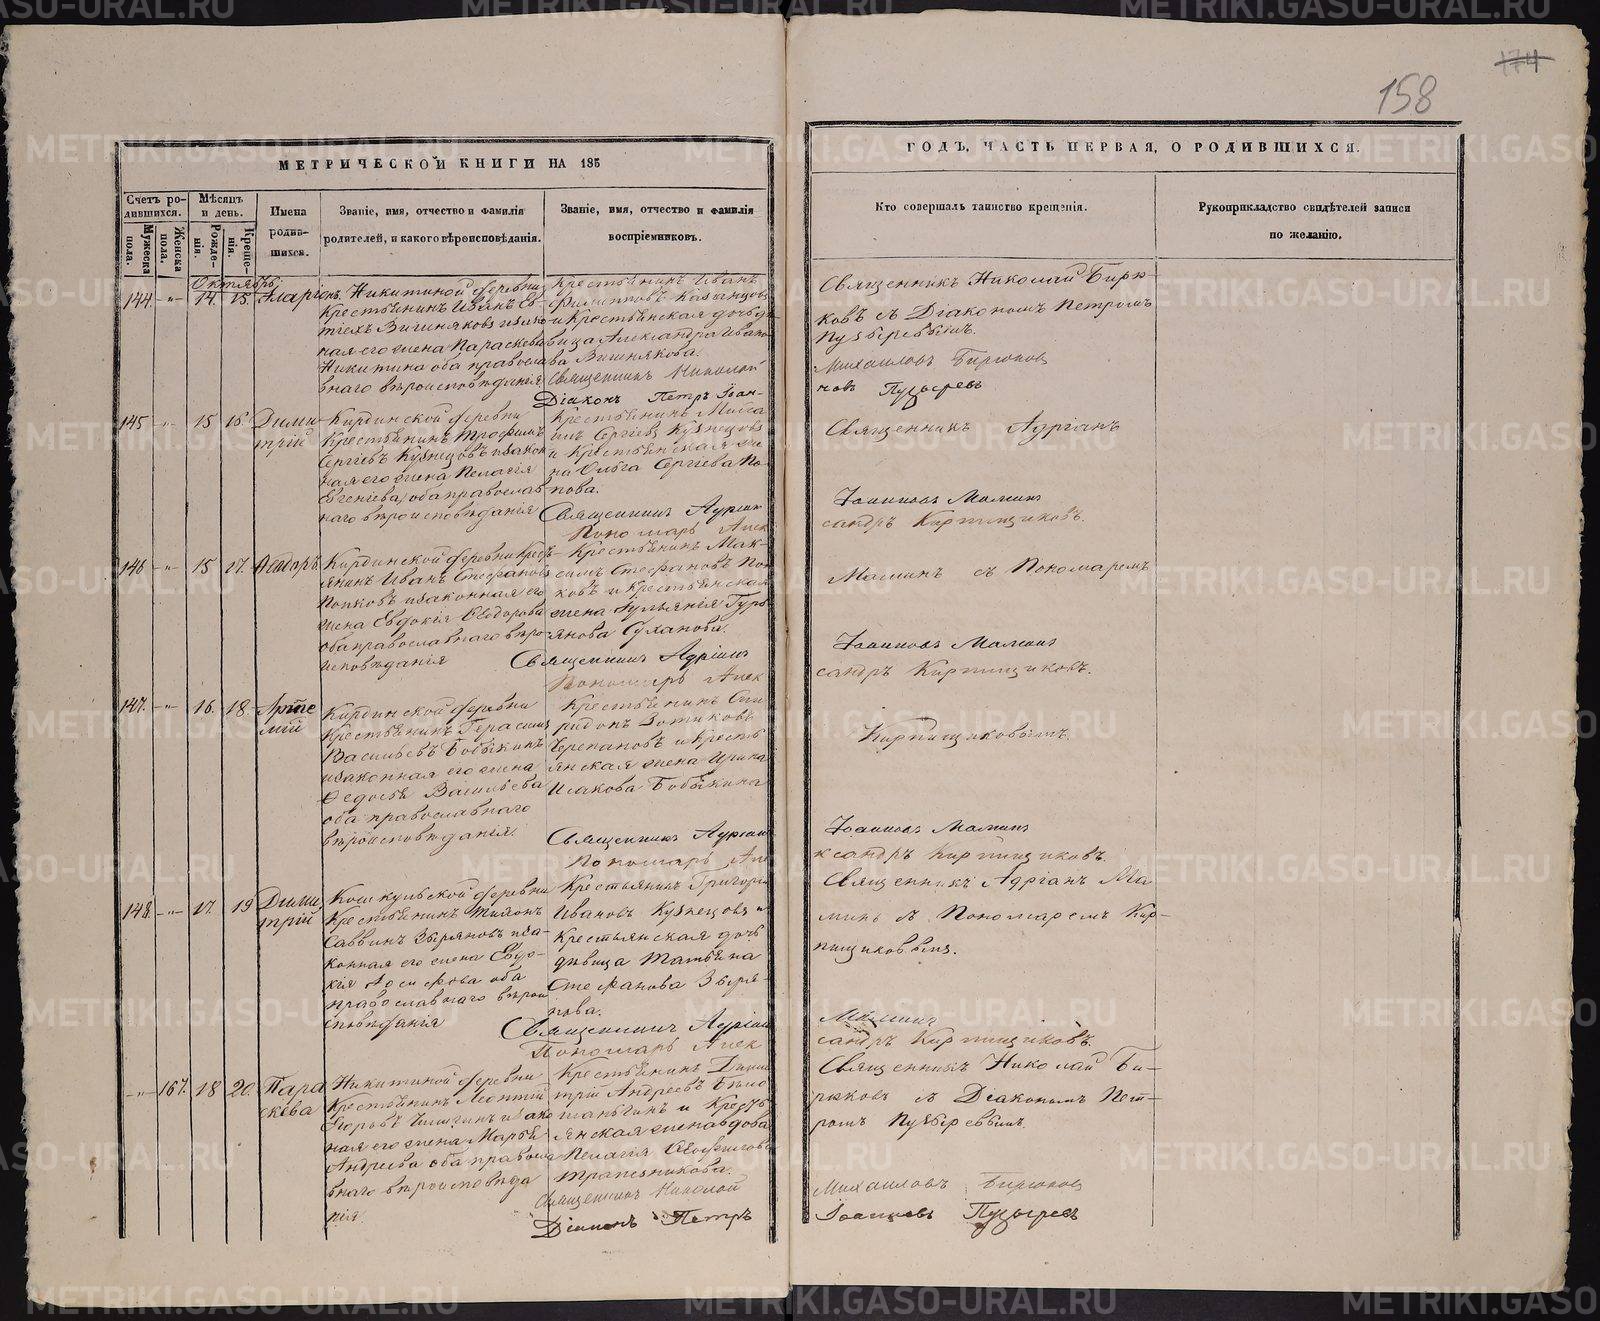 174
158
МЕТРИЧЕСКОЙ КНИГИ НА 185
ГОДЪ, ЧАСТЬ ПЕРВАЯ, О РОДИВШИХСЯ.
Счетъ ро-
дившихся.
Мужеска
пола.
Женска
пола.
Мѣсяцъ
и день.
Рожде-
нія.
Креще-
нія.
Имена
родив-
шихся.
Званіе, имя, отчество и фамилія
родителей, и какого вѣроисповѣданія.
Званіе, имя, отчество и фамилія
воспріемниковъ.
Кто совершалъ таинство крещенія.
Рукоприкладство свидѣтелей записи
по желанію.
Октябрь
144. -„- 14. 15. Иларіонъ
Никитиной деревни
Крестьянинъ Иванъ Ев-
Вишняковъ и закон
ная его жена Параскева
Никитина оба правосла
внаго вѣроисповѣданія
Крестьянинъ Иванъ
Филипповъ Казанцовъ
и Крестьянская дочь дѣ
вица Александра Ивано
ва Вишнякова.
Священникъ Николай
Діаконъ Петръ Іоан-
Священникъ Николай Бирю-
ковъ съ Діакономъ Петромъ
Пузыревымъ.
Михаиловъ Бирюков
новъ Пузыревъ
145 -„- 15 16. Дими
трій
Кирдинской деревни
Крестьянинъ Трофимъ
Сергіевъ Кузнецовъ и закон
ная его жена Пелагія
Евгеніева, оба православ
наго вѣроисповѣданія
Крестьянинъ Моисе
Сергіевъ Кузнецовъ
и Крестьянская же
на Ольга Сергіева По-
пова.
Священникъ Адріан
Пономарь Алек
Священникъ Адріанъ
Іоанновъ Мамин
сандръ Кирпищиковъ.
146 -„- 15 17. Ѳеодоръ
Кирдинской деревни Крест-
янинъ Иванъ Стефановъ
Попковъ и законная его
жена Евдокія Ѳеодорова
оба православнаго вѣро
исповѣданія
Крестьянинъ Мак-
симъ Стефановъ Поп
ковъ и Крестьянская
жена Іуліанія Гурь
янова Суханова.
Священникъ Адріан
Пономарь Алек
Маминъ съ Пономаремъ
Іоанновъ Мамин
сандръ Кирпищиковъ.
147. -„- 16. 18. Арте
мій
Кирдинской деревни
Крестьянинъ Герасимъ
Васильевъ Бобыкинъ
и законная его жена
Ѳедосья Васильева
оба православнаго
вѣроисповѣданія.
Крестьянинъ Спи
ридонъ Зотиковъ
Черепановъ и Кресть
янская жена Ирина
Исакова Бобыкина
Священникъ Адріан
Пономарь Але
Кирпищиковымъ.
Іоанновъ Мамин
ксандръ Кирпищиковъ.
148. -„- 17. 19 Дими
трій
Кошкульской деревни
Крестьянинъ Тихонъ
Саввинъ Зыряновъ и за-
конная его жена Евдо-
кія Іосифова оба
православнаго вѣрои
сповѣданія
Крестьянинъ Григорій
Ивановъ Кузнецовъ и
Крестьянская дочь
дѣвица Татьяна
Стефанова Зыря
нова.
Священникъ Адріан
Пономарь Алек
Священникъ Адріанъ Ма
минъ съ Пономаремъ Кир-
пищиковымъ.
Мамин
сандръ Кирпищиковъ.
-„- 167. 18 20. Пара
скева
Никитиной деревни
Крестьянинъ Леонтій
Егоровъ и зако
ная его жена Марья
Андреева оба правосла
внаго вѣроисповѣда
нія.
Крестьянинъ Дими
трій Андреевъ Бѣло
и Крестъ
янская жена вдова
Пелагія Ѳеофилова
Трапезникова.
Священникъ Николай
Діаконъ Петръ
Священникъ Николай Би-
рюковъ съ Діакономъ Пет-
ромъ Пузыревымъ.
Михаиловъ Бирюков
Іоанновъ Пузыревъ
METRIKI.GASO-URAL.RU